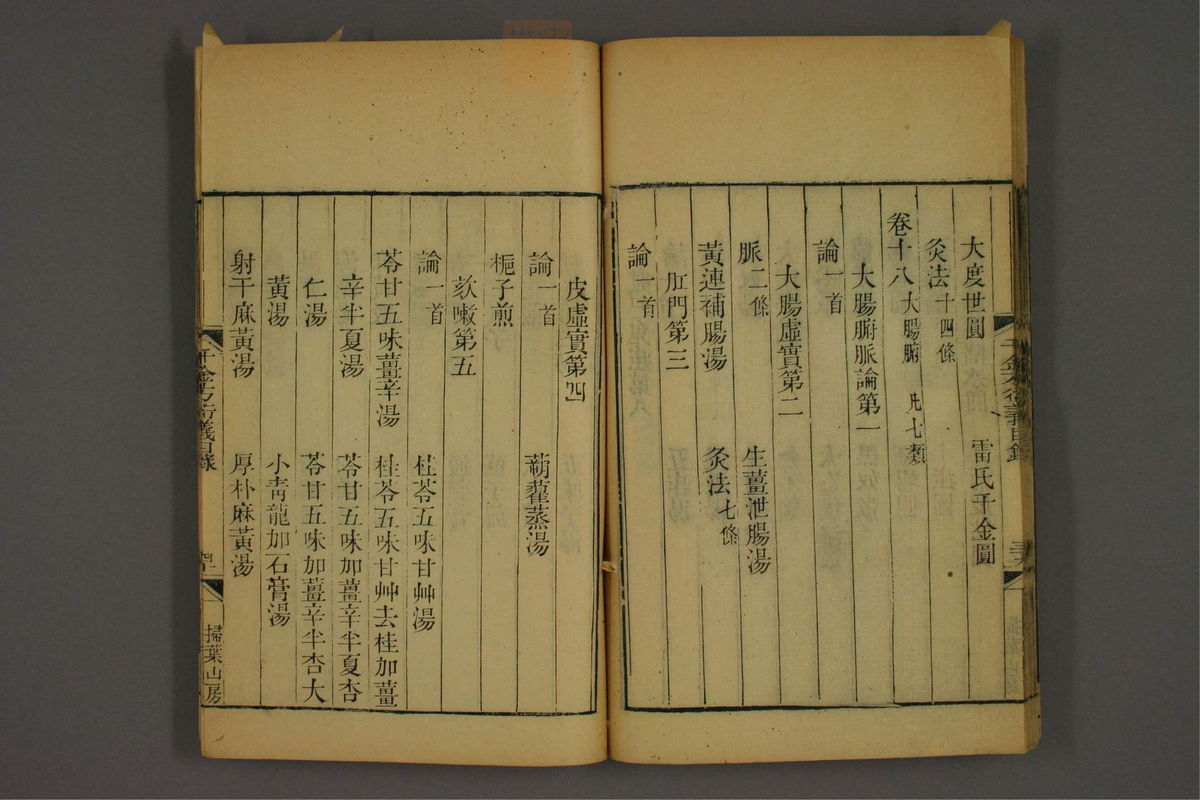 大度世圓 雷氏千金圓
灸法十四條
卷十八 大腸腑 凡七類
大腸腑脈論第一
論一首
大腸虛實第二
脈二條 生薑泄腸湯
黃連補腸湯 灸法七條
肛門第三
論一首
皮虛實第四
論一首 蒴藋蒸湯
梔子煎
欬嗽第五
論一首 桂苓五味甘艸湯
苓甘五味薑辛湯 桂苓五味甘艸去桂加薑
辛半夏湯 苓甘五味加薑辛半夏杏
仁湯 苓甘五味加薑辛半杏大
黃湯 小靑龍加石膏湯
射干麻黃湯 厚朴麻黃湯
千金方衍義目錄
掃葉山房